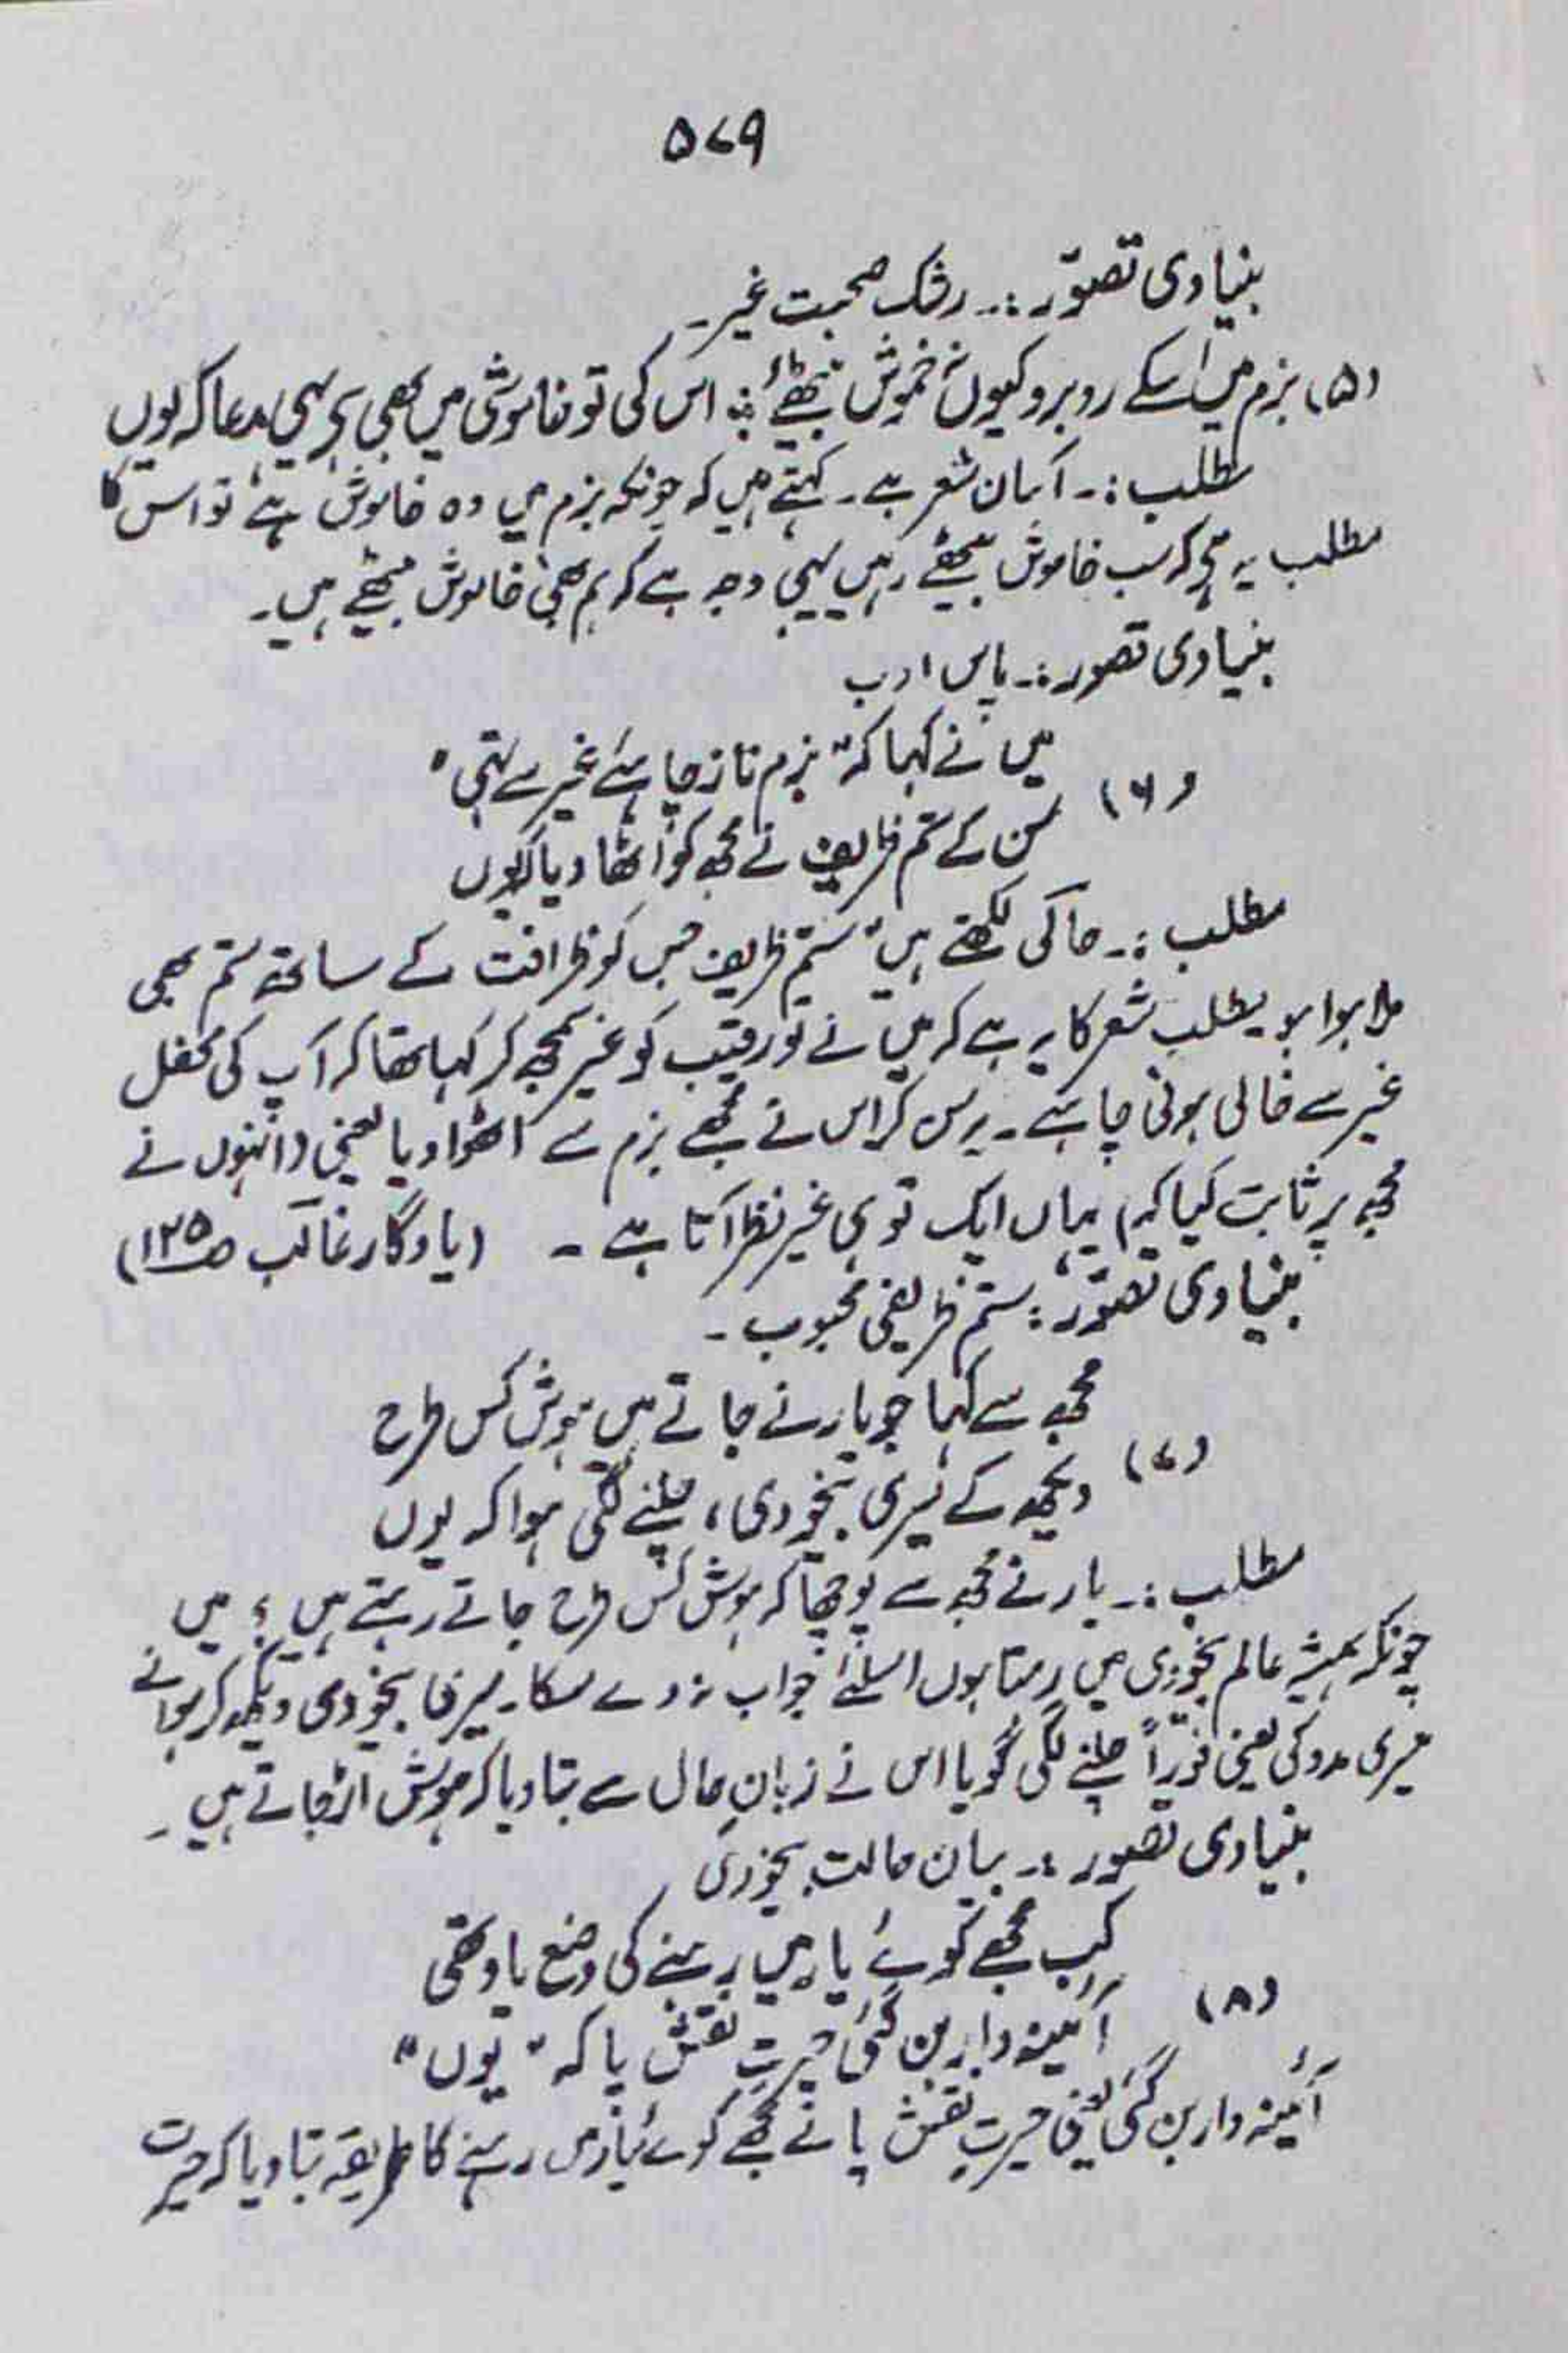 ۵۷۹
بنیادی تصوّر :۔ رشک صحبت غیر۔
(۵) بزم میں اُسکے روبرو کیوں نہ خموش بیٹھئے ؛ اس کی تو خاموشی میں بھی ہے یہی مدعا کہ یوں
مطلب :۔ آسان شعر ہے۔ کہتے ہیں کہ چونکہ بزم میں وہ خاموش ہے تو اس کا
مطلب یہ ہے کہ سب خاموش بیٹھے رہیں یہی وجہ ہے کہ ہم بھی خاموش بیٹھے ہیں۔
بنیادی تصور :۔ پاس ادب
میں نے کہا کہ "بزم ناز چاہئے غیر سے تہی"
(۶)
سن کے ستم ظریف نے مجھ کو اُٹھا دیا کہ یوں
مطلب :۔ حالی لکھتے ہیں "ستم ظریف جس کو ظرافت کے ساتھ ستم بھی
ملا ہوا ہو یطلب شعر کا یہ ہے کہ میں نے تو رقیب کو غیر سمجھ کر کہا تھا کہ آپ کی محفل
غیر سے خالی ہونی چاہئے۔ یہ سن کر اس نے مجھے بزم سے اٹھوا دیا یعنی (انہوں نے
مجھ پر ثابت کیا کہ) یہاں ایک تو ہی غیر نظر آتا ہے ۔ (یادگار غالب ص۱۲۵)
بنیادی تصوّر : ستم ظریفی محبوب ۔
مجھ سے کہا جو یار نے جاتے ہیں ہوش کس طرح
(۷)
دیکھ کے میری بیخودی، چلنے لگی ہوا کہ یوں
مطلب :۔ یار نے مجھ سے پوچھا کہ ہوش کس طرح جاتے رہتے ہیں ؟ میں
چونکہ ہمیشہ عالم بیخودی میں رہتا ہوں اسلئے جواب نہ دے سکا۔ میری بیخودی دیکھ کر ہوا نے
میری مدد کی یعنی فوراً چلنے لگی گویا اس نے زبانِ حال سے بتا دیا کہ ہوش اڑ جاتے ہیں ۔
بنیادی تصور :۔ بیان حالت بیخودی
کب مجھے کوئے یار میں رہنے کی وضع یاد تھی
(۸)
آئینہ دار بن گئی حیرتِ نقش پا کہ "یوں"
آئینہ دار بن گئی یعنی حیرتِ نقش پا نے مجھے کوئے یار میں رہنے کا طریقہ بتا دیا کہ حیرت